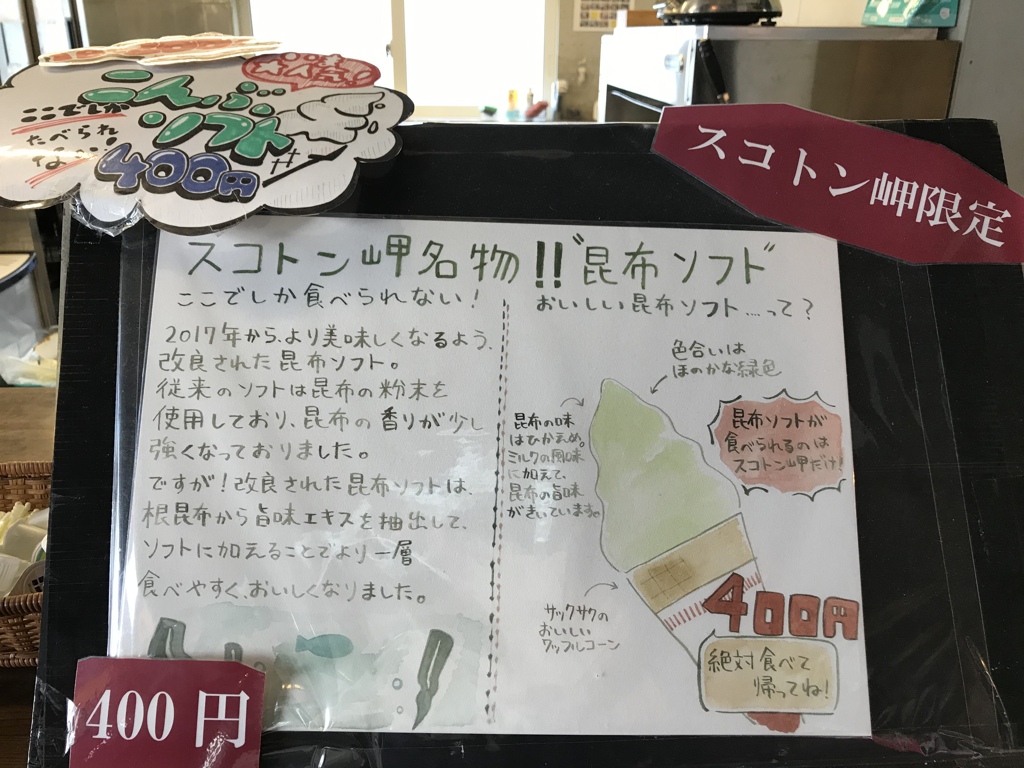 こんぶ
ソフト
ここでしか
たべられ
400円
スコトン岬限定
スコトン岬名物!!"昆布ソフト"
ここでしか食べられない!
2017年から、より美味しくなるよう、
改良された昆布ソフト。
従来のソフトは昆布の粉末を
使用しており、昆布の香りが少し
強くなっておりました。
ですが!改良された昆布ソフトは、
根昆布から旨味エキスを抽出して、
ソフトに加えることでより一層
食べやすく、おいしくなりました。
おいしい昆布ソフト....って?
色合いは
ほのかな緑色
昆布の味
はひかえめ。
ミルクの風味
に加えて、
昆布の旨味
がきいています。
昆布ソフトが
食べられるのは
スコトン岬だけ!
サックサクの
おいしい
ワッフルコーン
400円
絶対食べて
帰ってね!
400円